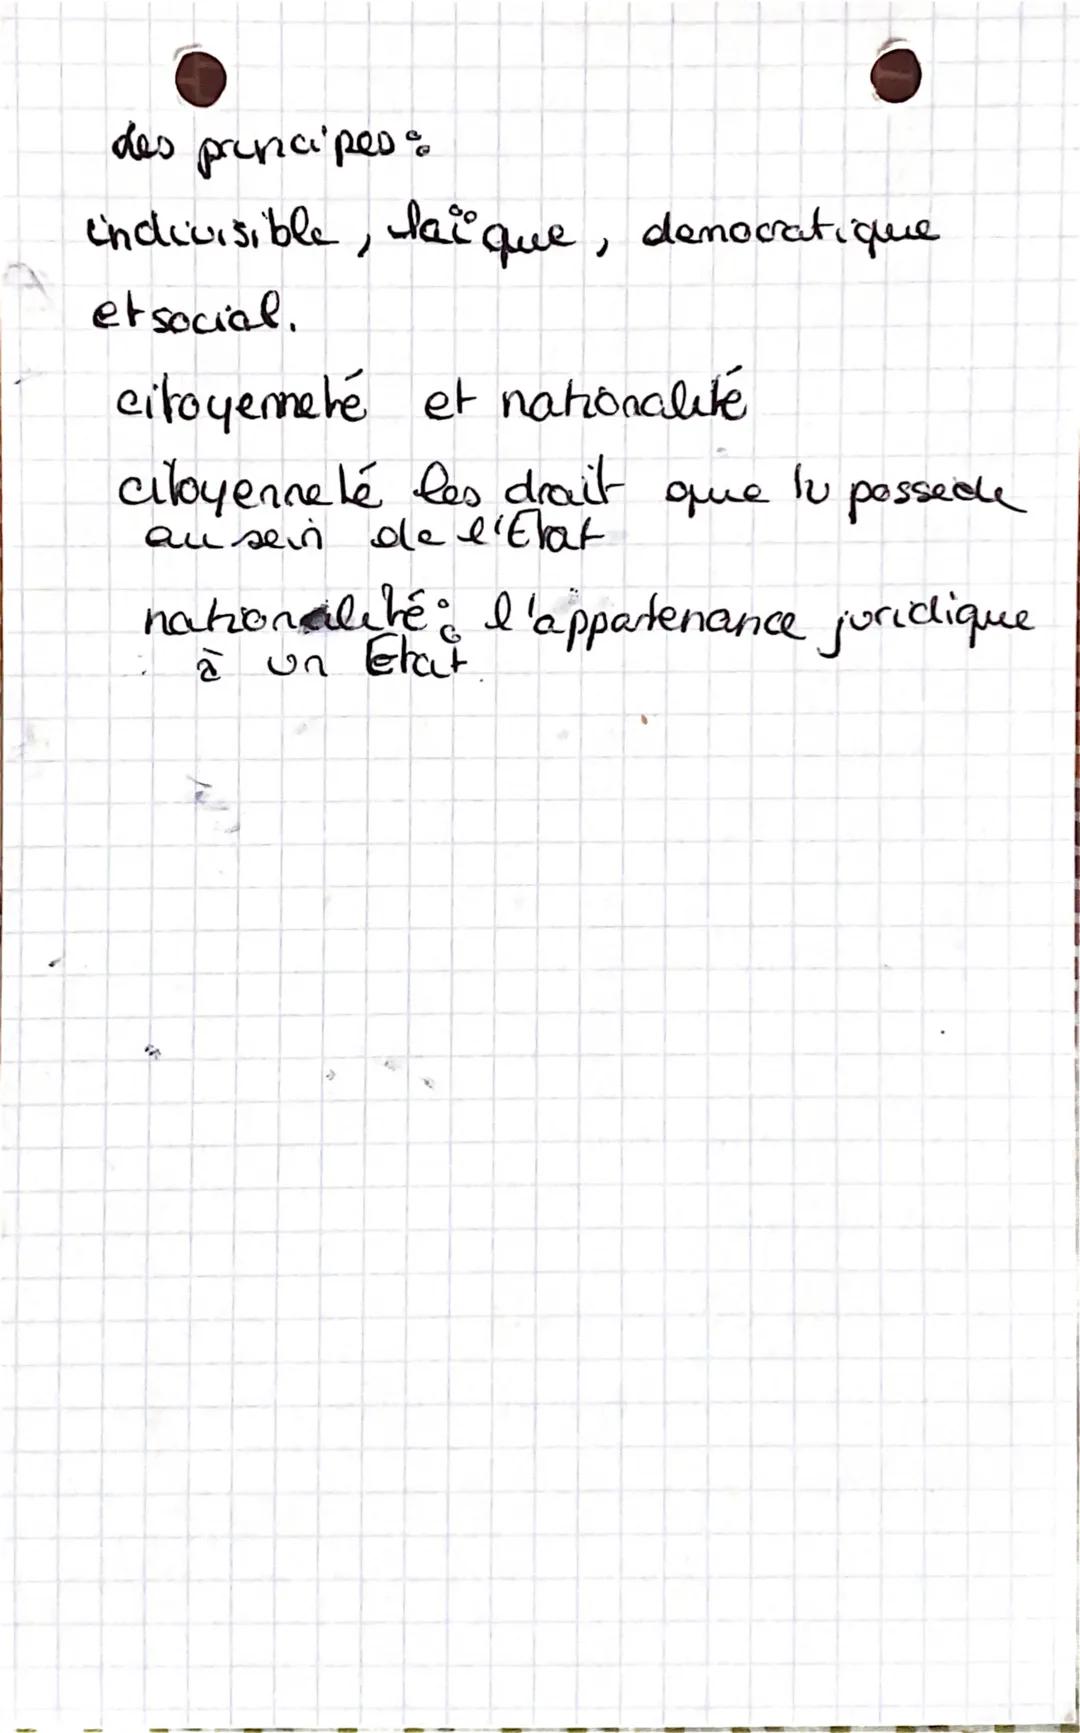 des principes :
indivisible, laïque, democratique
et social.
citoyenneté et nationalité
citoyenneté les drait que tu possede
au sein de l'Etat
nationalité : l'appartenance juridique
à un Etat.